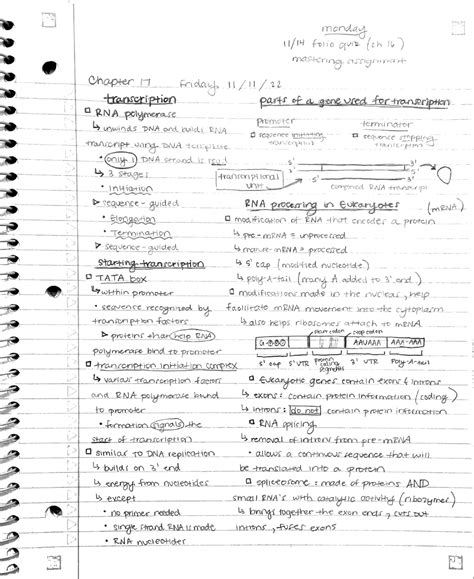 monday
11/14 folio quiz (ch 16)
mastering assignment
Chapter 17 Friday, 11/11/22
transcription
□ RNA polymerase
↳ unwinds DNA and builds RNA
transcript using DNA template
• only 1 DNA strand is used
↳ 3 stages
• Initiation
▷ sequence-guided
• Elongation
• Termination
▷ sequence-guided
starting transcription
□ TATA box
↳ within promoter
• sequence recognized by
transcription factors
▷ proteins that help RNA
polymerase bind to promoter
□ transcription initiation complex
↳ various transcription factors
and RNA polymerase bound
to promoter
• formation signals the
start of transcription
□ similar to DNA replication
↳ builds on 3' end
↳ energy from nucleotides
↳ except
• no primer needed
• single strand RNA is made
• RNA nucleotides
parts of a gene used for transcription
promoter terminator
□ sequence initiating
transcription
□ sequence stopping
transcription
5' 3'
3' 5'
transcriptional
unit
5' 3'
completed RNA transcript
RNA processing in Eukaryotes
(mRNA)
□ modification of RNA that encodes a protein
↳ pre-mRNA = unprocessed
↳ mature-mRNA = processed
↳ 5' cap (modified nucleotide)
↳ poly-A-tail (many A added to 3' end)
□ modifications made in the nucleus, help
facilitate mRNA movement into the cytoplasm
↳ also helps ribosomes attach to mRNA
start codon stop codon
AAUAAA AAA...AAA
5' cap 5' UTR protein coding segments 3' UTR Poly-A-tail
□ Eukaryotic genes contain exons & introns
↳ exons: contain protein information (coding)
↳ introns: do not contain protein information
□ RNA splicing
↳ removal of introns from pre-mRNA
• allows a continuous sequence that will
be translated into a protein
□ spliceosome: made of proteins AND
small RNA's with catalytic activity (ribozymes)
↳ brings together the exon ends, cuts out
introns, fuses exons